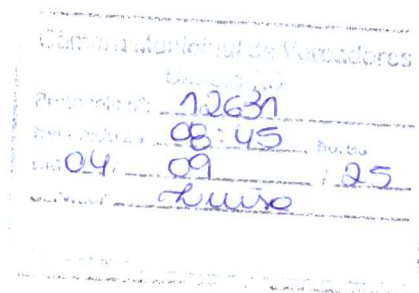 Câmara Municipal de Vereadores
Protocolo nº 12631
08:45 horas
04 / 09 / 25
Luisa